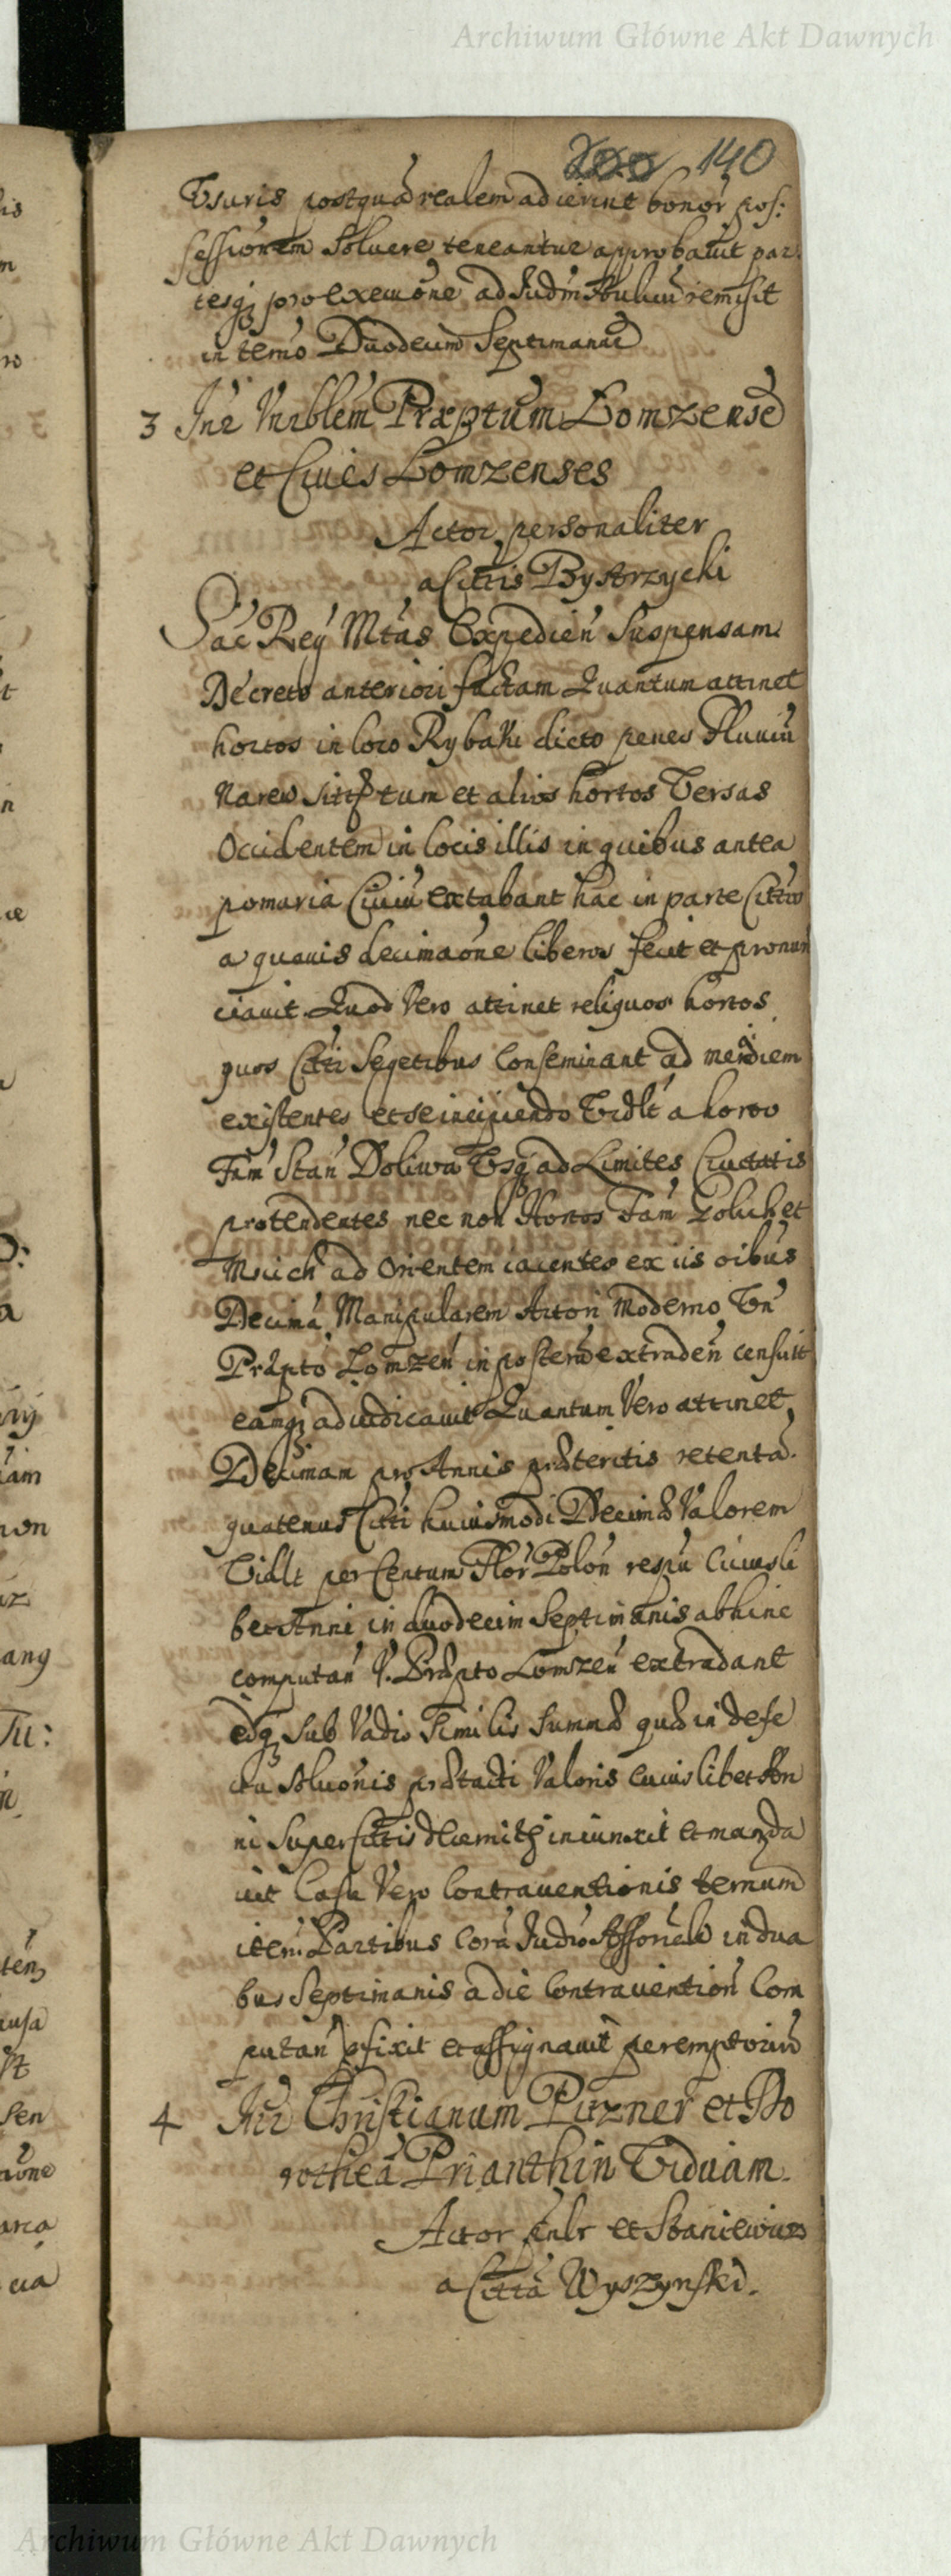 Archiwum Główne Akt Dawnych
200 140
Vsuris postquã realem adierint bonor̃ pos:
sessionem soluere teneantur approbauit par
tesq; pro exeuõne ad Iudm remisit
in termo Duodecim Septimanar̃
3 Int̃ Vnrblem Præptum Lomzensẽ
et Ciues Lomzenses
Actor personaliter
a Cittis Bystrzycki
Sac Reg Mtas Expedien̄ Suspensam
Decreto anteriori factam Quantum attinet
hortos in loco Rybaki dicto penes Fluuiũ
Narew tum et alios hortos Versus
Occidentem in locis illis in quibus antea
pomaria Ciuiũ extabant hac in parte Cittos
a quauis decimaõne liberos fecit et pronun
ciauit. Quod Vero attinet reliquos hortos
quos Citti Segetibus Conseminant ad meridiem
existentes et se incipiendo Vidlt a horto
Fam̃ Stan̄ Doliwa Vsq; ad Limites Ciuitatis
protendentes nec non Hortos Fam̃ et
ad Orientem iacentes ex iis oibus
Decimã Manipularem Actori Moderno Vn̄
Præpto Lomzen̄ in posterũ extraden̄ censuit
eamq; adiudicauit Quantum Vero attinet
Decimam pro Annis præteritis retentã
quatenus Citti huiusmodi Decimæ Valorem
Vidlt per Centum Flor̃ Polon̄ respũ Cuiusli
bet Anni in duodecim Septimanis abhinc
computan̄ V. Præpto Lomzen̄ extradant
idq; Sub Vadio Similis Summæ quæ in defe
ctu Soluõnis prætacti Valoris cuiuslibet An
ni Super Cittis iniunxit et manda
uit Casu Vero Contrauentionis ternum
item Partibus Corã Iudio Assoriali in dua
bus Septimanis a die Contrauention̄ Com
putan̄ pfixit et assignauit peremptoriũ
4 Int̃ Christianum Pirzner et Do
rotheã Prianthin Viduam
Actor et Staniewicz
a Cittã Wyszynski.
Archiwum Główne Akt Dawnych